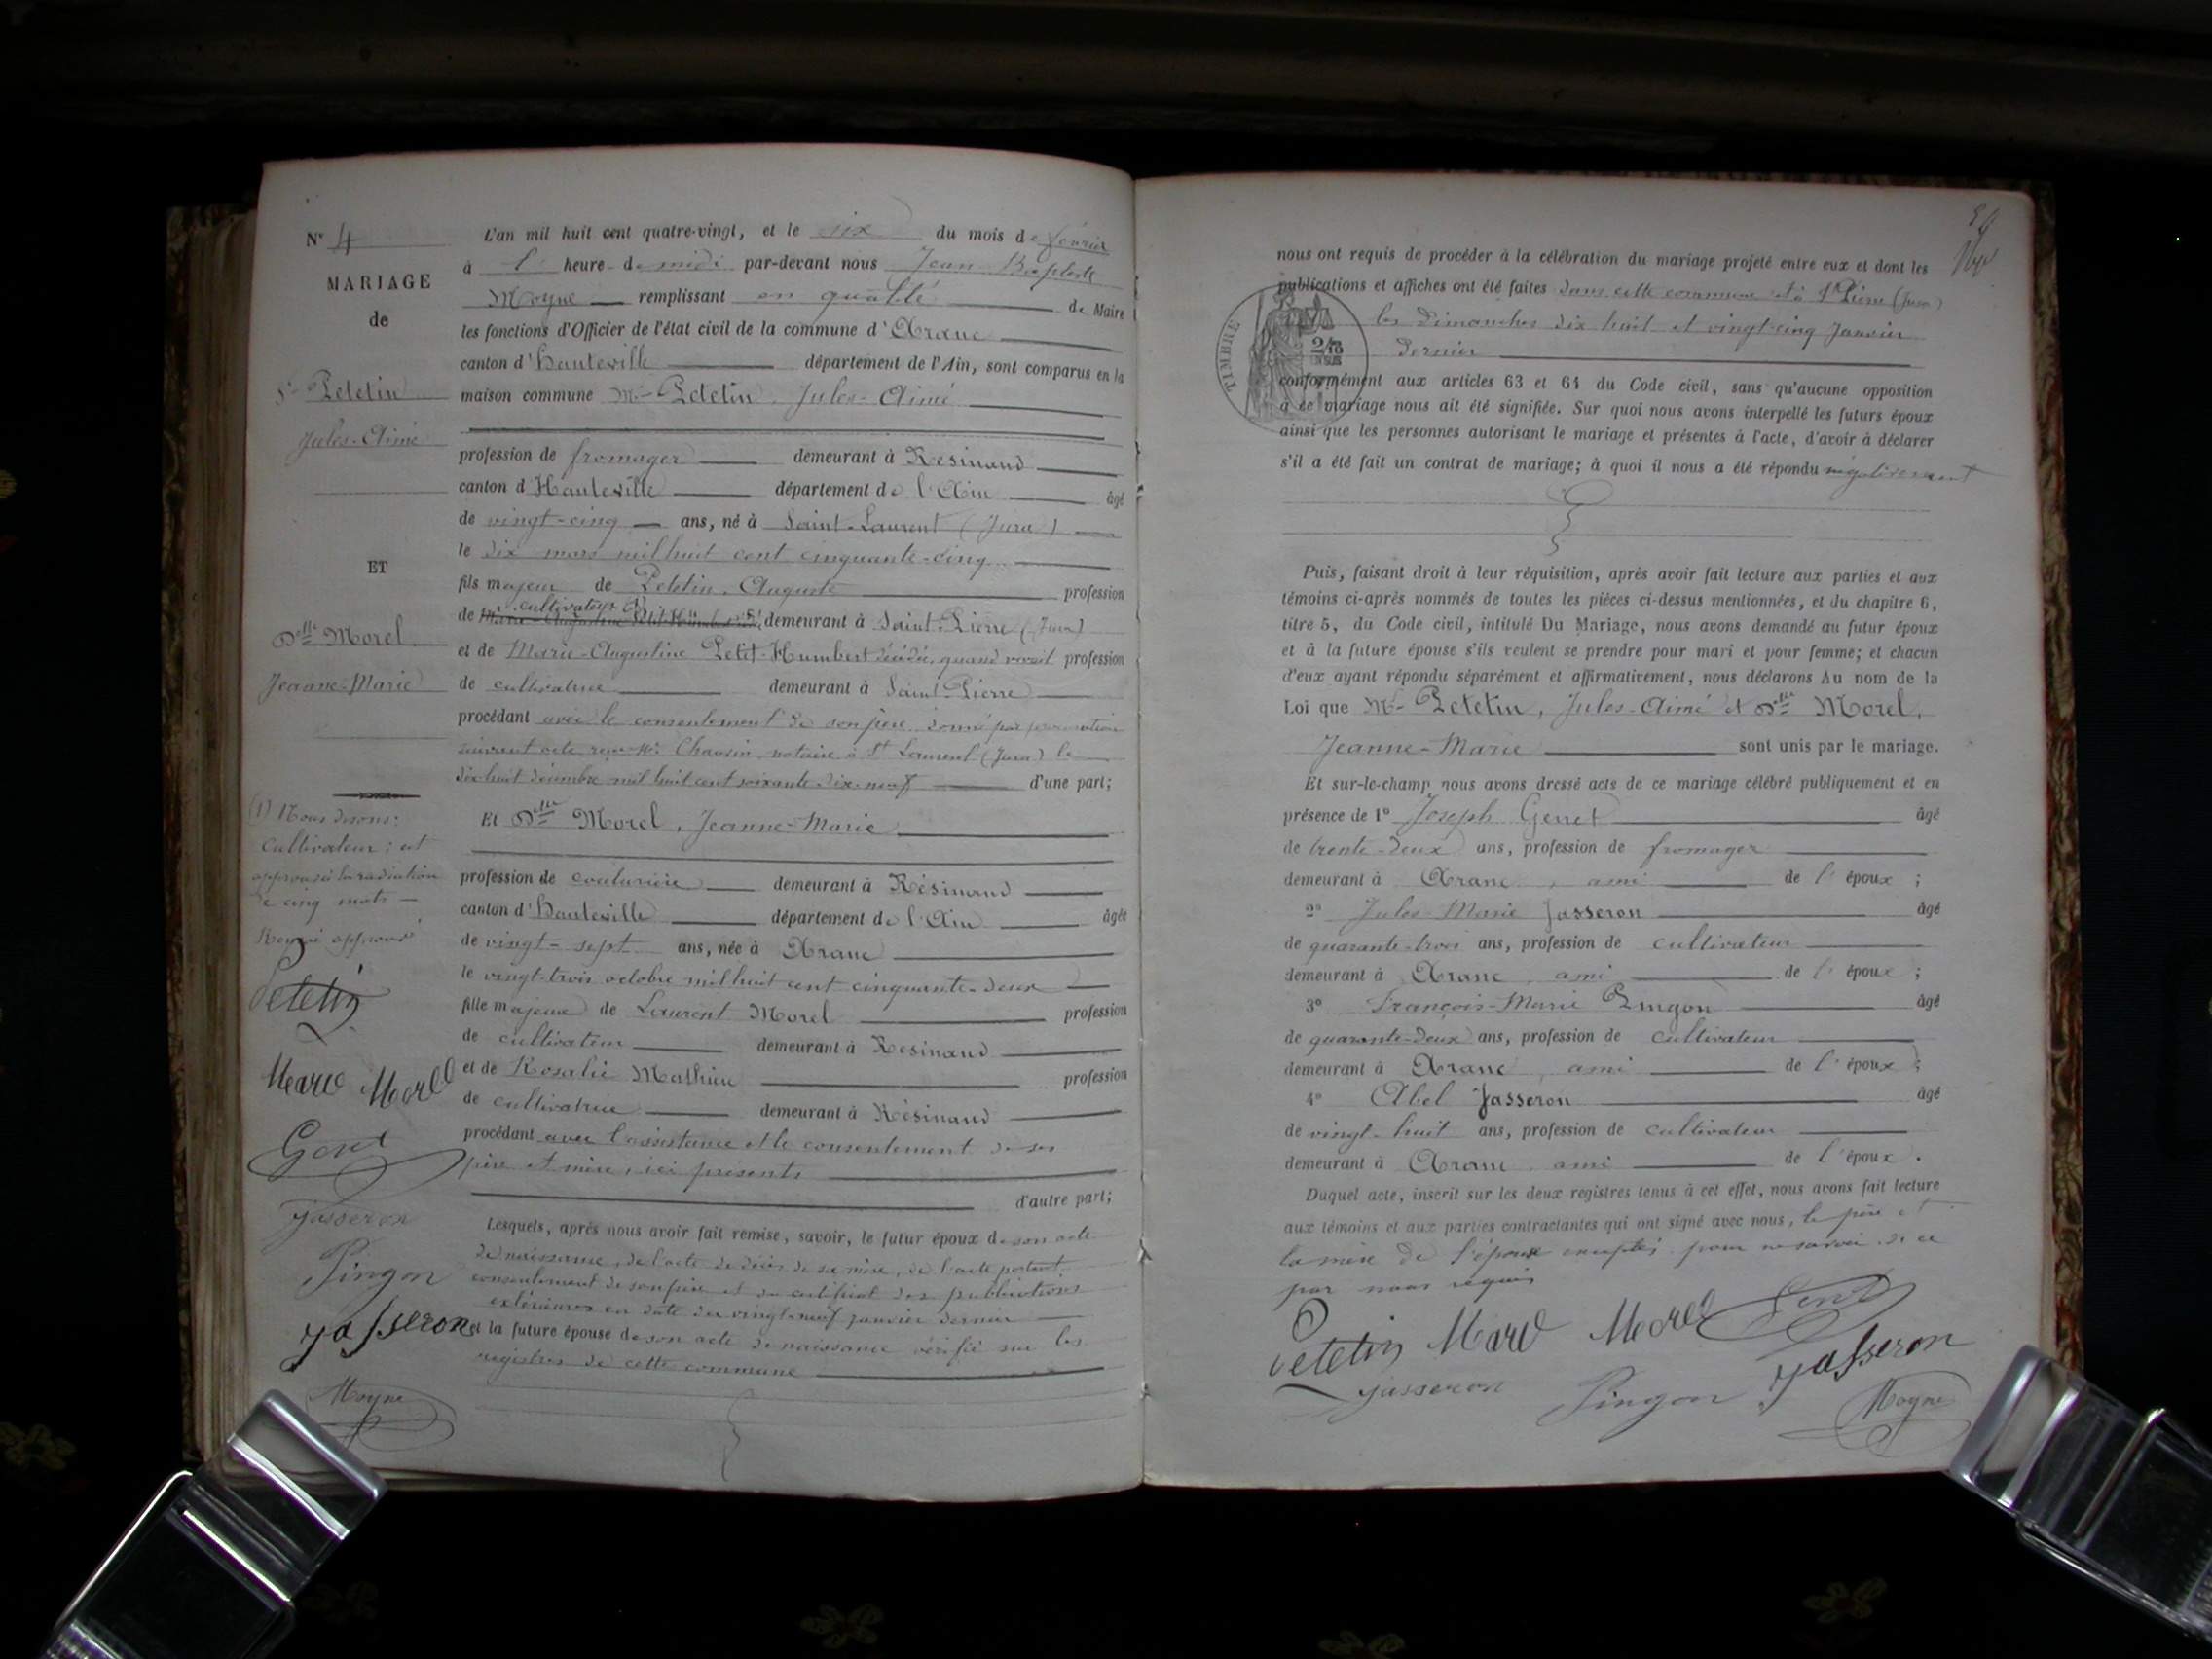 N° 4
MARIAGE
de
Sr Petetin
Jules-Aimé
ET
Dlle Morel
Jeanne-Marie
(1) Nous disons:
cultivateur; est
approuvé la radiation
de cinq mots —
Renvoi approuvé
Petetin
Marie Morel
Genet
Jasseron
Pingon
Jasseron
Moyne
L'an mil huit cent quatre-vingt, et le six du mois de février
à l' heure de midi par-devant nous Jean Baptiste
Moyne remplissant en qualité de Maire
les fonctions d'Officier de l'état civil de la commune d'Aranc
canton d'Hauteville département de l'Ain, sont comparus en la
maison commune Mr Petetin, Jules-Aimé
profession de fromager demeurant à Résinand
canton d'Hauteville département de l'Ain âgé
de vingt-cinq ans, né à Saint-Laurent (Jura)
le dix mars mil huit cent cinquante-cinq
fils majeur de Petetin, Auguste profession
cultivateur (1)
de Marie-Augustine Petit-Humbert demeurant à Saint-Pierre (Jura)
et de Marie-Augustine Petit-Humbert décédée, quand vivait profession
de cultivatrice demeurant à Saint-Pierre
procédant avec le consentement de son père, donné par procuration
suivant acte reçu Me Chavsin, notaire à St Laurent (Jura) le
dix huit décembre mil huit cent soixante-dix-neuf d'une part;
Et Dlle Morel, Jeanne-Marie
profession de couturière demeurant à Résinand
canton d'Hauteville département de l'Ain âgée
de vingt-sept ans, née à Aranc
le vingt-trois octobre mil huit cent cinquante-deux
fille majeure de Laurent Morel profession
de cultivateur demeurant à Résinand
et de Rosalie Mathieu profession
de cultivatrice demeurant à Résinand
procédant avec l'assistance et le consentement de ses
père et mère, ici présents
d'autre part;
Lesquels, après nous avoir fait remise, savoir, le futur époux de son acte
de naissance, de l'acte de décès de sa mère, de l'acte portant
consentement de son père et du certificat des publications
extérieures en date du vingt-neuf janvier dernier
et la future épouse de son acte de naissance vérifié sur les
registres de cette commune
nous ont requis de procéder à la célébration du mariage projeté entre eux et dont les
publications et affiches ont été faites dans cette commune et à St Pierre (Jura)
les dimanches dix huit et vingt-cinq Janvier
dernier
TIMBRE
conformément aux articles 63 et 64 du Code civil, sans qu'aucune opposition
à ce mariage nous ait été signifiée. Sur quoi nous avons interpellé les futurs époux
ainsi que les personnes autorisant le mariage et présentes à l'acte, d'avoir à déclarer
s'il a été fait un contrat de mariage; à quoi il nous a été répondu négativement
Puis, faisant droit à leur réquisition, après avoir fait lecture aux parties et aux
témoins ci-après nommés de toutes les pièces ci-dessus mentionnées, et du chapitre 6,
titre 5, du Code civil, intitulé Du Mariage, nous avons demandé au futur époux
et à la future épouse s'ils veulent se prendre pour mari et pour femme; et chacun
d'eux ayant répondu séparément et affirmativement, nous déclarons Au nom de la
Loi que Mr Petetin, Jules-Aimé et Dlle Morel,
Jeanne-Marie sont unis par le mariage.
Et sur-le-champ nous avons dressé acte de ce mariage célébré publiquement et en
présence de 1° Joseph Genet âgé
de trente-deux ans, profession de fromager
demeurant à Aranc, ami de l'époux;
2° Jules Marie Jasseron âgé
de quarante-trois ans, profession de cultivateur
demeurant à Aranc, ami de l'époux;
3° François-Marie Pingon âgé
de quarante-deux ans, profession de cultivateur
demeurant à Aranc, ami de l'époux;
4° Abel Jasseron âgé
de vingt-huit ans, profession de cultivateur
demeurant à Aranc, ami de l'époux.
Duquel acte, inscrit sur les deux registres tenus à cet effet, nous avons fait lecture
aux témoins et aux parties contractantes qui ont signé avec nous, le père et
la mère de l'épouse exceptés pour ne savoir de ce
par nous requis
Petetin Marie Morel Genet
Jasseron Pingon Jasseron
Moyne